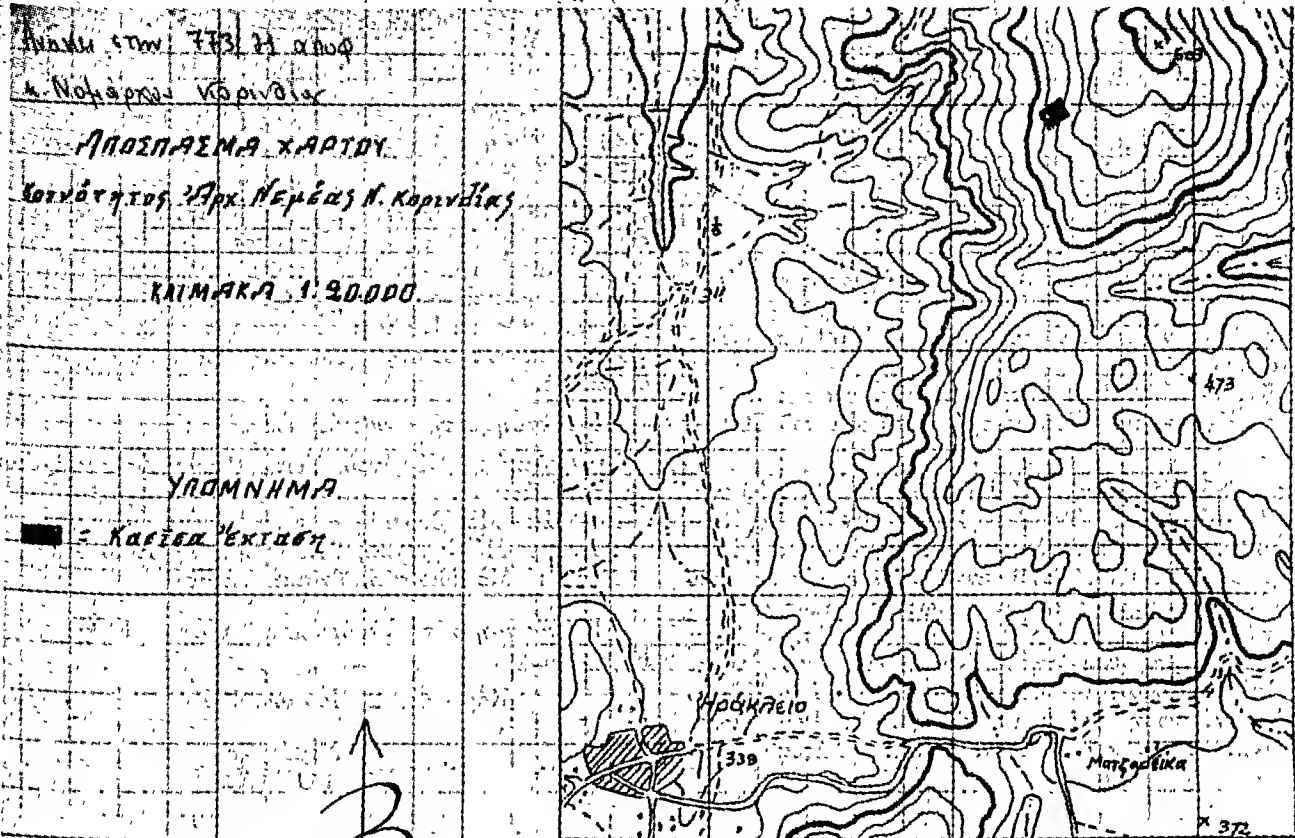 773/71 αποφ
κ. Νομάρχου Κορινθίας
ΑΠΟΣΠΑΣΜΑ ΧΑΡΤΟΥ
Κοινότητος Ἀρχ. Νεμέας Ν. Κορινθίας
ΚΛΙΜΑΚΑ 1:20.000
ΥΠΟΜΝΗΜΑ
= Καεῖσα Ἔκταση
311
473
Ἡράκλειο
339
Ματζαβέϊκα
372
Β